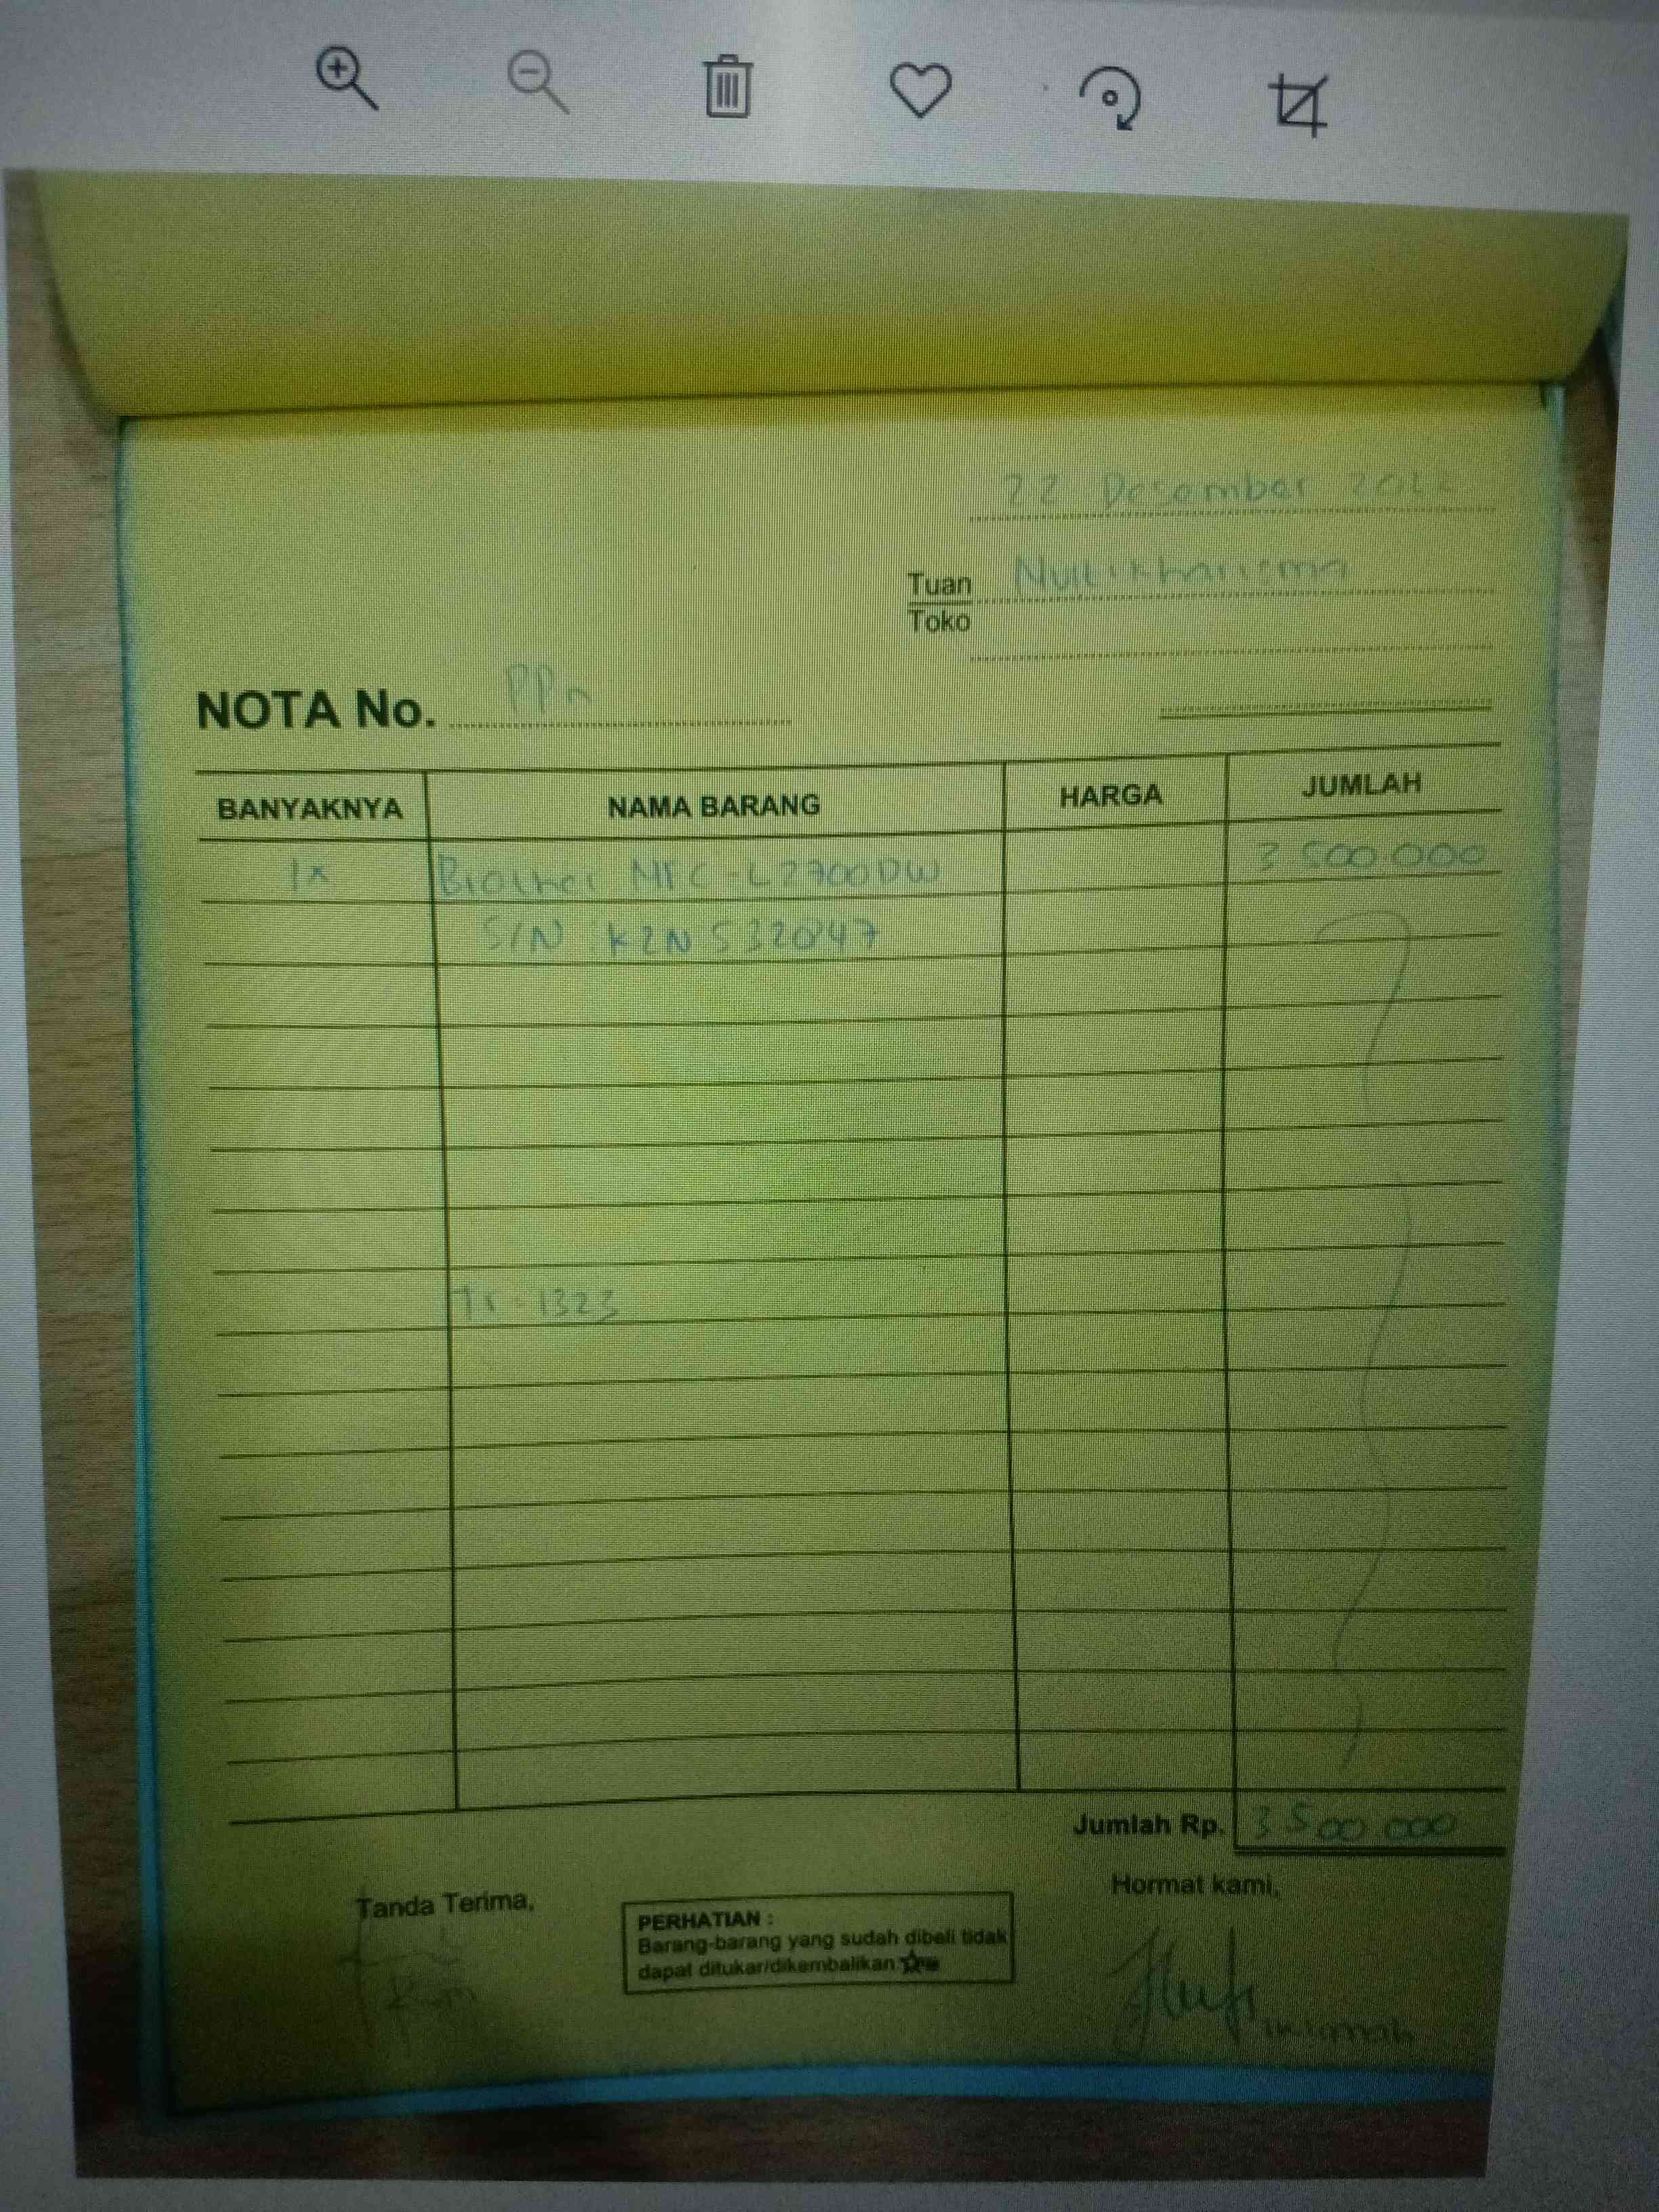 22 Desember 2022
Tuan
Toko
NOTA No. PPn
BANYAKNYA NAMA BARANG HARGA JUMLAH
1x Brother MFC-L2700DW 3 500 000
S/N : K2N532047
1323
Jumlah Rp. 3 500 000
Tanda Terima,
Hormat kami,
PERHATIAN :
Barang-barang yang sudah dibeli tidak
dapat ditukar/dikembalikan